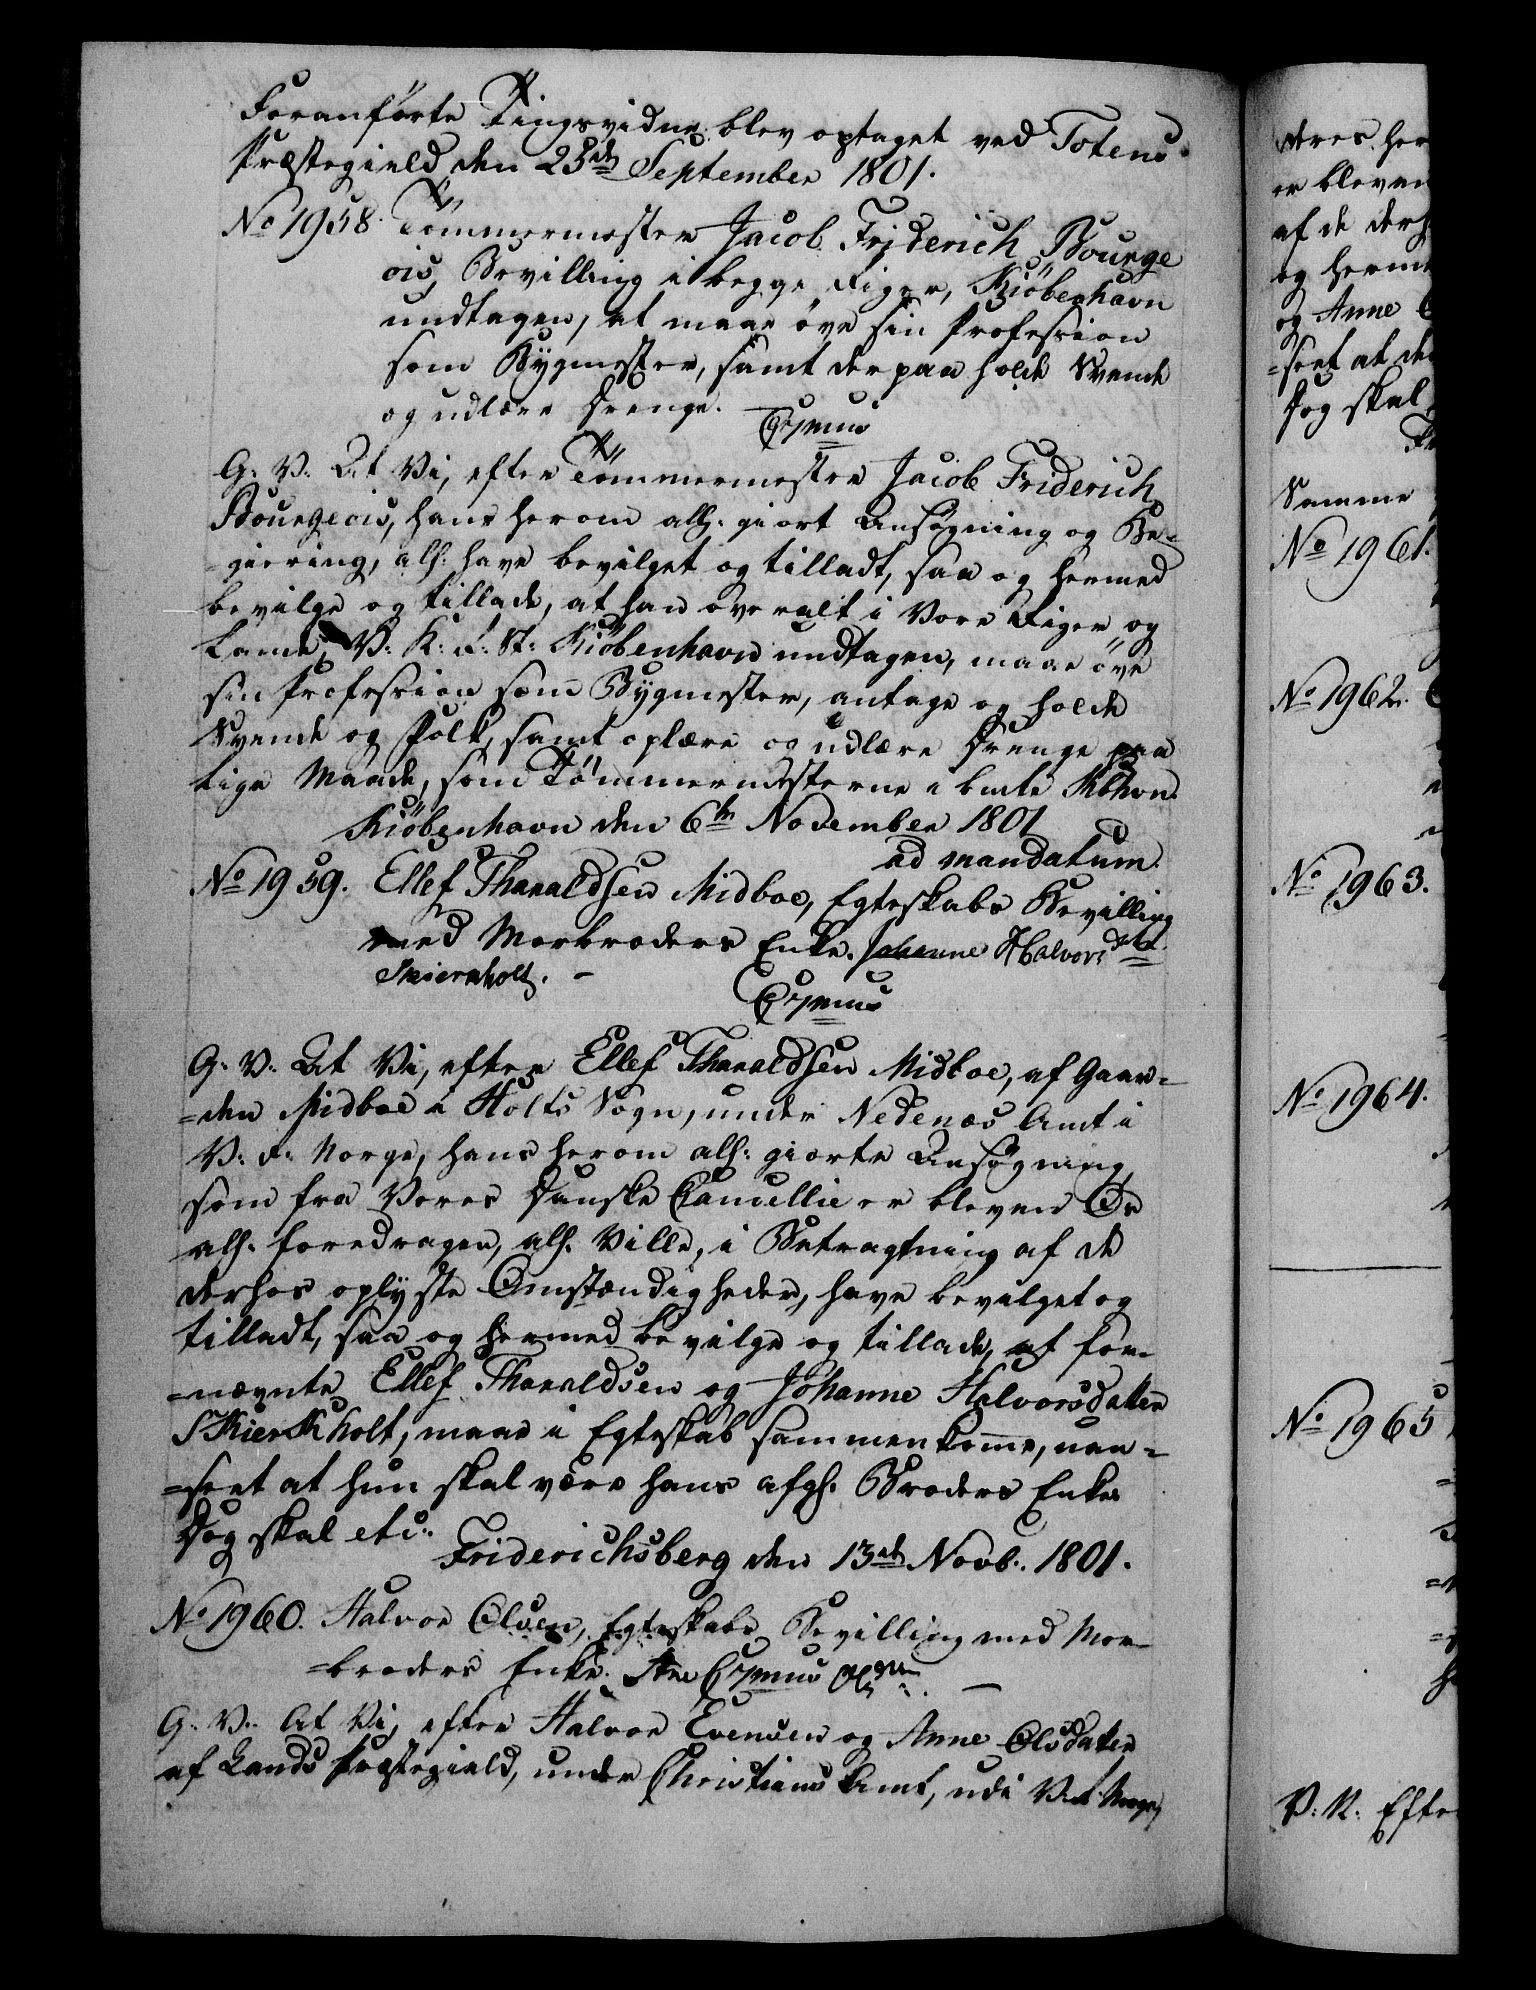 Foranførte Tingsvidne blev optaget ved Totens
Præstegield den 23de September 1801.
No 1958. Tømmermester Jacob Friderich Bourge
ois, Bevilling i begge Riger, Kiøbenhavn
undtagen, at maae øve sin Profession
som Bygmester, samt derpaa holde Svende
og udlære Drenge. —
Gratis
G: V: At Vi, efter Tømmermester Jacob Friderich
Bourgeois, hans herom allh: giort Ansøgning og Be-
=giering, allh: have bevilget og tilladt, saa og hermed
bevilge og tillade, at han overalt i Vore Riger og
Lande, V: K: R: St: Kiøbenhavn undtagen, maae øve
sin Profession som Bygmester, antage og holde
Svende og Folk, samt oplære og udlære Drenge paa
lige Maade, som Tømmermesterne i bemte Kbhvn.
Kiøbenhavn den 6te November 1801
ad mandatum.
No 1959. Ellef Tharaldsen Midboe, Egteskabs Bevilling
med Morbroders Enke. Johanne Halvorsdtr
Skierkholt. —
G: V: At Vi, efter Ellef Tharaldsen Midboe, af Gaar-
=den Midboe i Holts Sogn, under Nedenæs Amt i
V: R: Norge, hans herom allh: giorte Ansøgning,
som fra Vores Danske Cancellie er bleven Os
allh: foredragen, allh: Ville, i Betragtning af de
derhos oplyste Omstændigheder, have bevilget og
tilladt, saa og hermed bevilge og tillade, at for-
=nævnte Ellef Tharaldsen og Johanne Halvorsdatter
Skierkholt, maae i Egteskab sammenkomme, uan-
=seet at hun skal være hans afgl: Broders Enke
Dog skal etc:
Friderichsberg den 13de Novb. 1801.
No 1960. Halvor Olsen, Egteskabs Bevilling med Mor-
=broders Enke.
G: V: At Vi, efter Halvor Evensen og Anne Olsdatter
af Lands Præstegield, under Christians Amt, udi V: R: Norge,
deres her
er bleven
af de derh
og herme
og Anne
=seet at de
Dog skal
Samme
No 1961.
No 1962.
No 1963.
No 1964.
No 1965
V: R: Efter